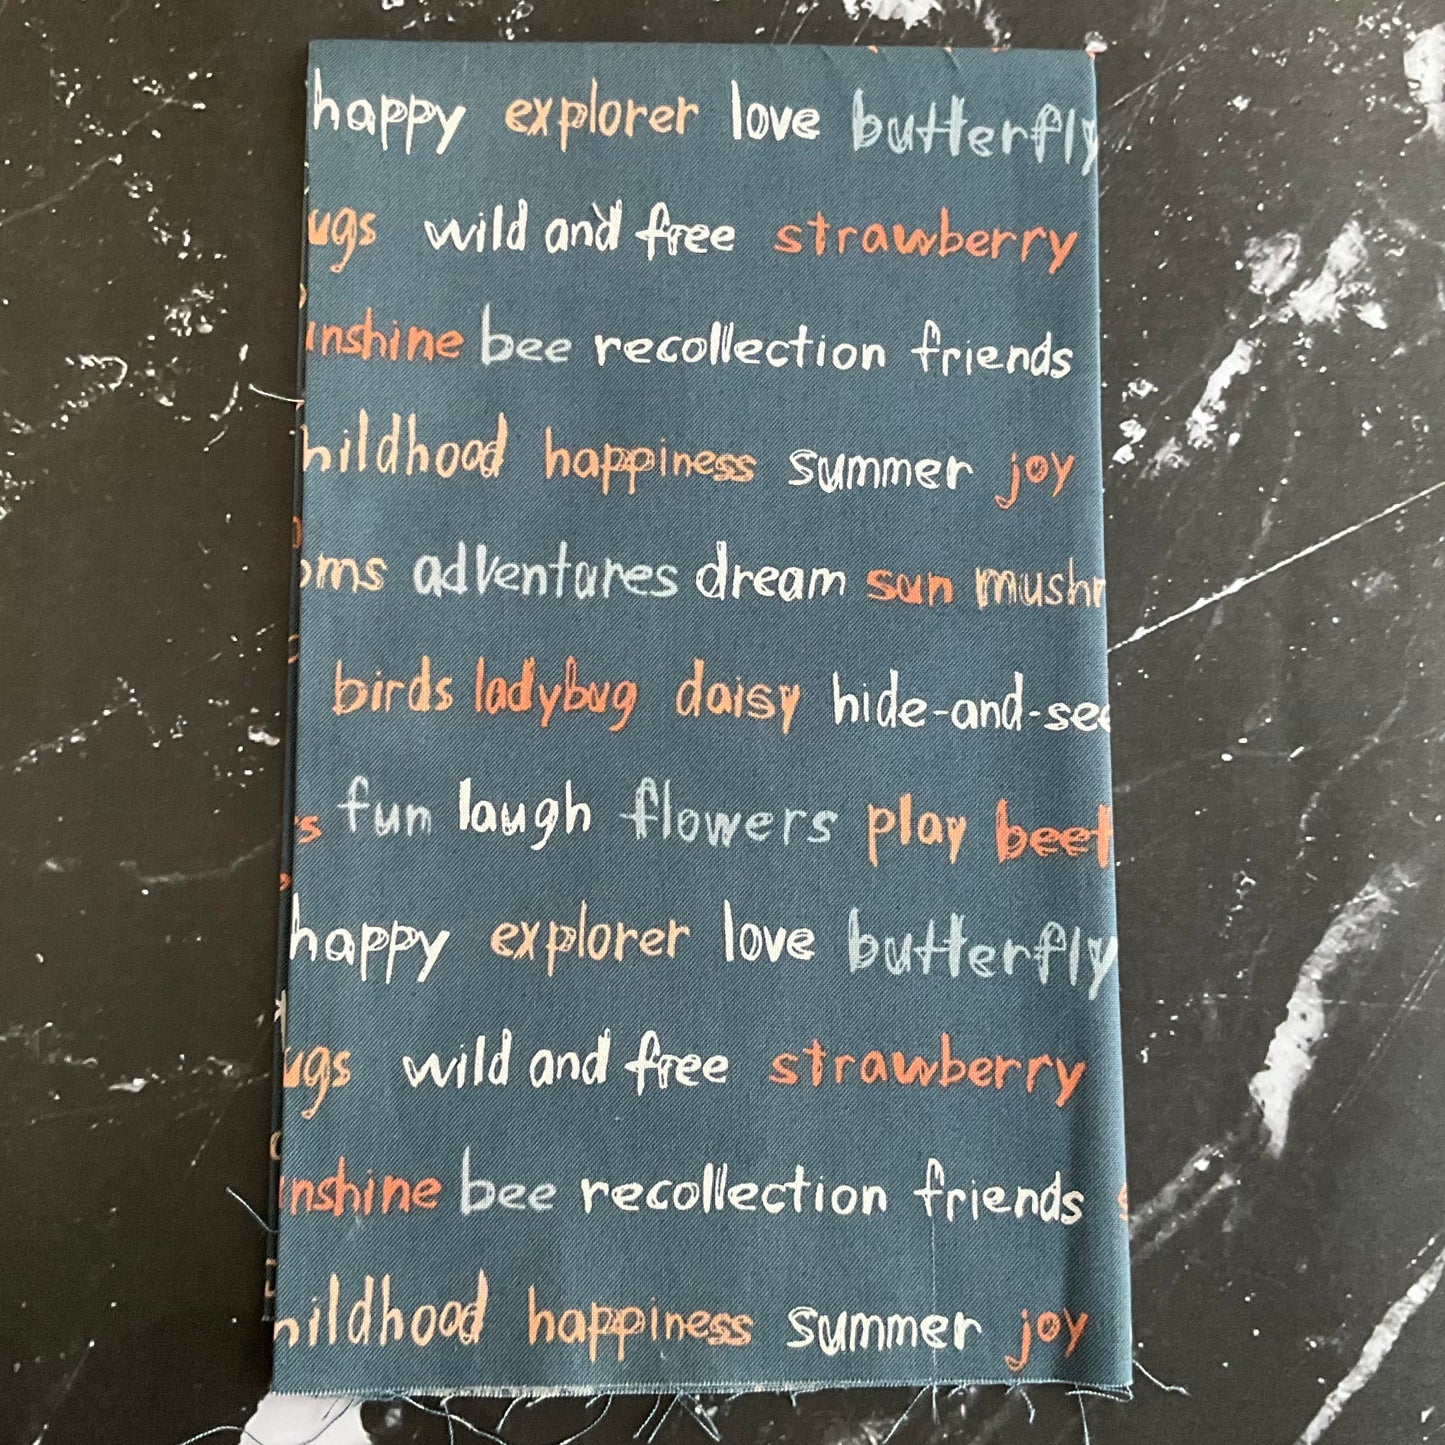 happy explorer love butterfly
ugs wild and free strawberry
nshine bee recollection friends
hildhood happiness summer joy
oms adventures dream sun mushr
birds ladybug daisy hide-and-see
rs fun laugh flowers play beet
happy explorer love butterfly
ugs wild and free strawberry
nshine bee recollection friends
hildhood happiness summer joy